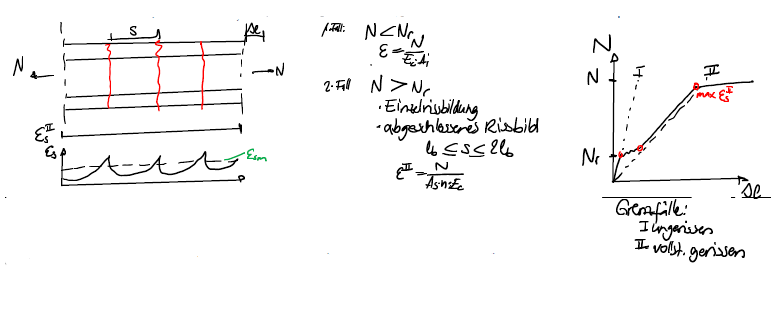 S
Δl
N
N
ε_s^II
ε_s
ε_sm
1. Fall: N < N_r
ε = N / E_c · A_i
2. Fall N > N_r
· Einzelrissbildung
· abgeschlossenes Rissbild
l_b ≤ s ≤ 2l_b
ε^II = N / A_s · n · E_c
N
N
I
II
max ε_s^II
N_r
Δl
Grenzfälle:
I ungerissen
II vollst. gerissen